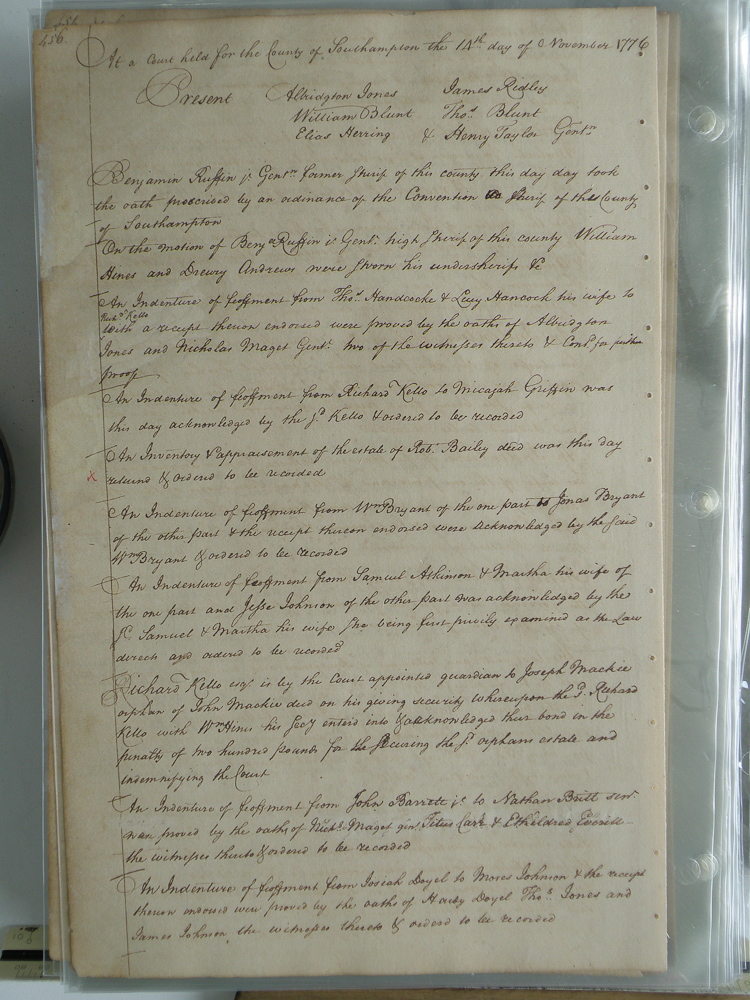 456
At a Court held for the County of Southampton the 14th day of November 1776
Present Albridgton Jones James Ridley
William Blunt Thos. Blunt
Elias Herring & Henry Taylor Gentn
Benjamin Ruffin jr Gentn former Sherif of this county this day day took
the oath prescribed by an ordinance of the Convention Sherif of this County
of Southampton
On the motion of Benja Ruffin jr Gent. high Sherif of this county William
Hines and Drewry Andrews were sworn his undersherifs &c
An Indenture of feoffment from Thos. Handcocke & Lucy Hancock his wife to
Richd Kello
with a receipt thereon endorsed were proved by the oaths of Albridgton
Jones and Nicholas Maget Gent. two of the witnesses thereto & Cont. for further
proof
An Indenture of feoffment from Richard Kello to Micajah Griffin was
this day acknowledged by the sd Kello & ordered to be recorded
An Inventory & appraisement of the estate of Rob. Bailey decd was this day
x returnd & ordered to be recorded
An Indenture of feoffment from Wm Bryant of the one part to Jonas Bryant
of the other part & the receipt thereon endorsed were acknowledged by the said
Wm Bryant & ordered to be recorded
An Indenture of feoffment from Samuel Atkinson & Martha his wife of
the one part and Jesse Johnson of the other part was acknowledged by the
sd Samuel & Martha his wife she being first privily examined as the Law
directs and ordered to be recorded
Richard Kello esqr. is by the Court appointed guardian to Joseph Mackie
orphan of John Mackie decd on his giving security whereupon the sd. Richard
Kello with Wm Hines his secy enterd into & acknowledged their bond in the
penalty of two hundred pounds for the securing the sd orphans estate and
indemnifying the Court
An Indenture of feoffment from John Barrett jr. to Nathan Britt senr
was proved by the oaths of Nichs. Maget gent. Titus Carr & Etheldred Everett
the witnesses thereto & ordered to be recorded
An Indenture of feoffment from Josiah Doyel to Moses Johnson & the receipt
thereon endorsed were proved by the oaths of Hardy Doyel Thos. Jones and
James Johnson the witnesses thereto & orderd to be recorded